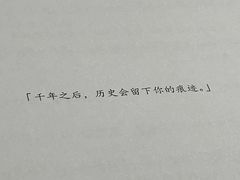 「千年之后，历史会留下你的痕迹。」